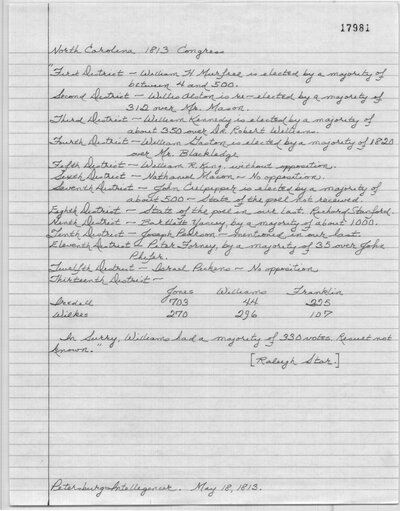 17981
North Carolina 1813 Congress
"First District – William H Murfree is elected by a majority of
between 4 and 500.
Second District – Willis Alston is re-elected by a majority of
312 over Mr. Mason.
Third District – William Kennedy is elected by a majority of
about 350 over Dr. Robert Williams.
Fourth District – William Gaston is elected by a majority of 1820
over Mr. Blackledge
Fifth District – William R. King, without opposition.
Sixth District – Nathaniel Macon – No opposition.
Seventh District – John Culpepper is elected by a majority of
about 500 – State of the poll not received
Eighth District – State of the poll in our last. Richard Stanford.
Ninth District – Bartlett Yancey by a majority of about 1000.
Tenth District – Joseph Pearson – mentioned in our last.
Eleventh District – Peter Forney, by a majority of 35 over John
Phifer.
Twelfth District – Israel Pickens – No opposition
Thirteenth District –
Jones Williams Franklin
Iredell 703 44 295
Wilkes 270 296 107
In Surry, Williams had a majority of 330 votes. Result not
known."
[Raleigh Star]
Petersburg Intelligencer. May 18, 1813.